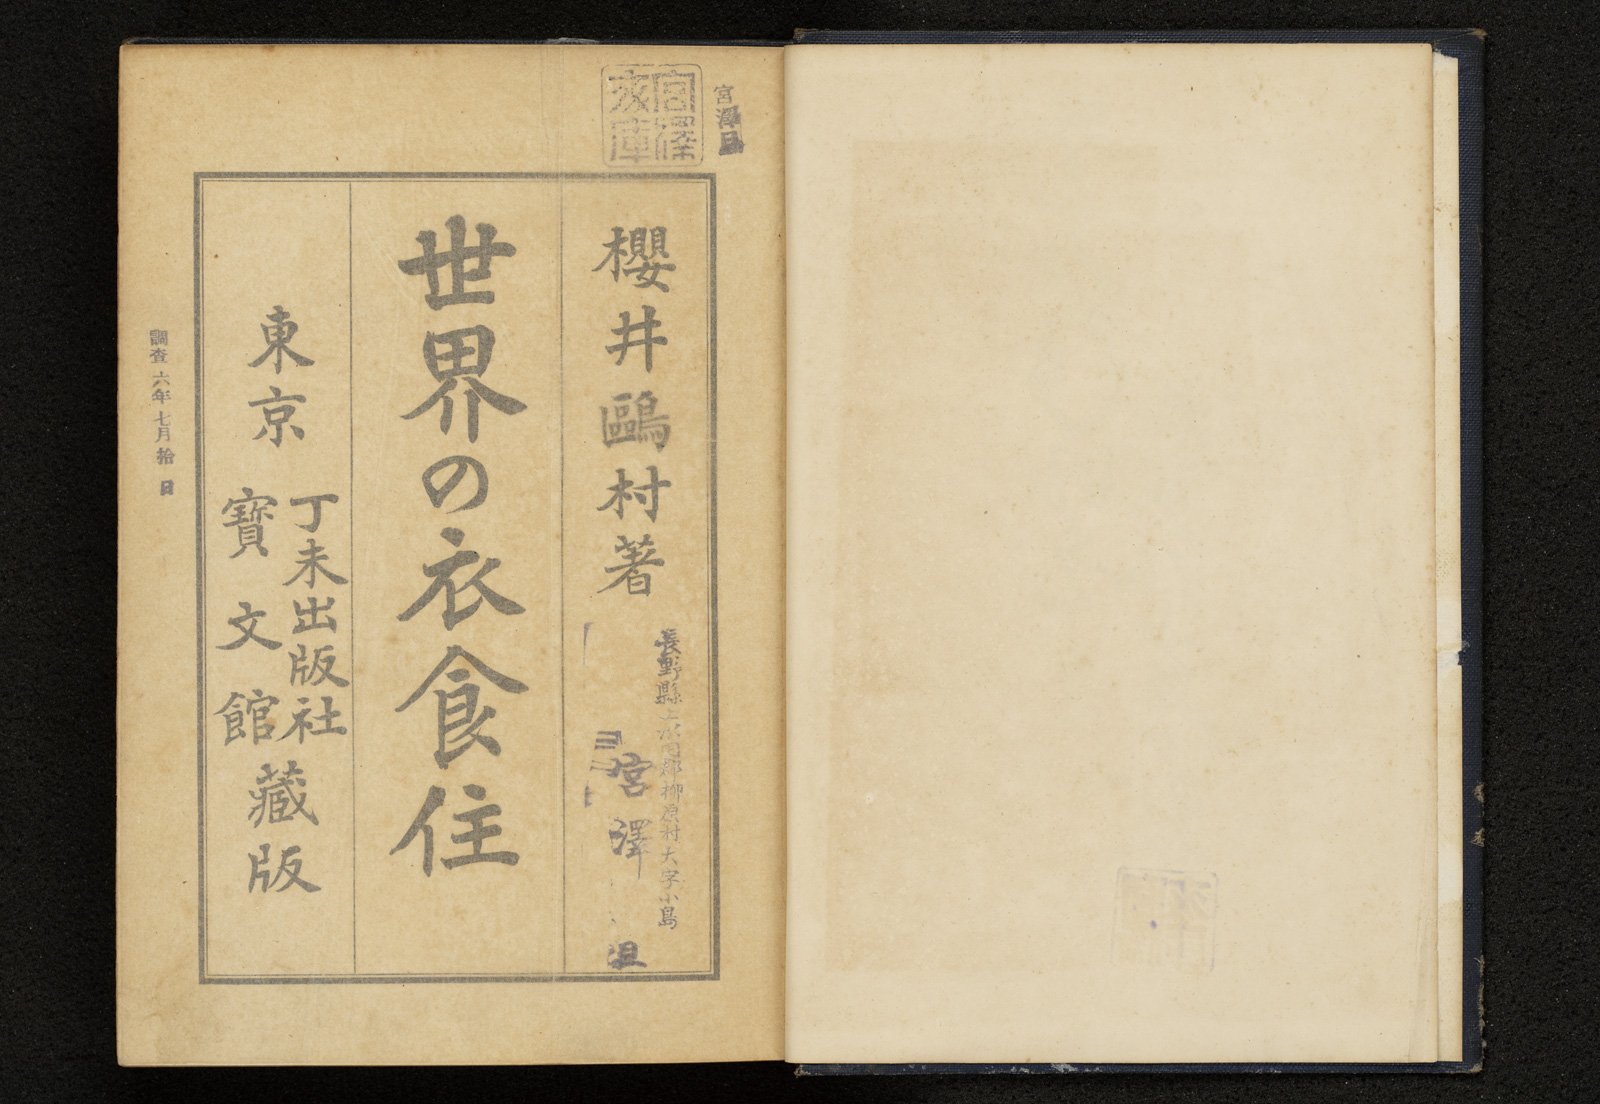 宮澤
宮澤文庫
櫻井鷗村著
長野縣上水内郡柳原村大字小島
宮澤
世界の衣食住
東京
丁未出版社
寶文館
藏版
調査 六年 七月 拾日